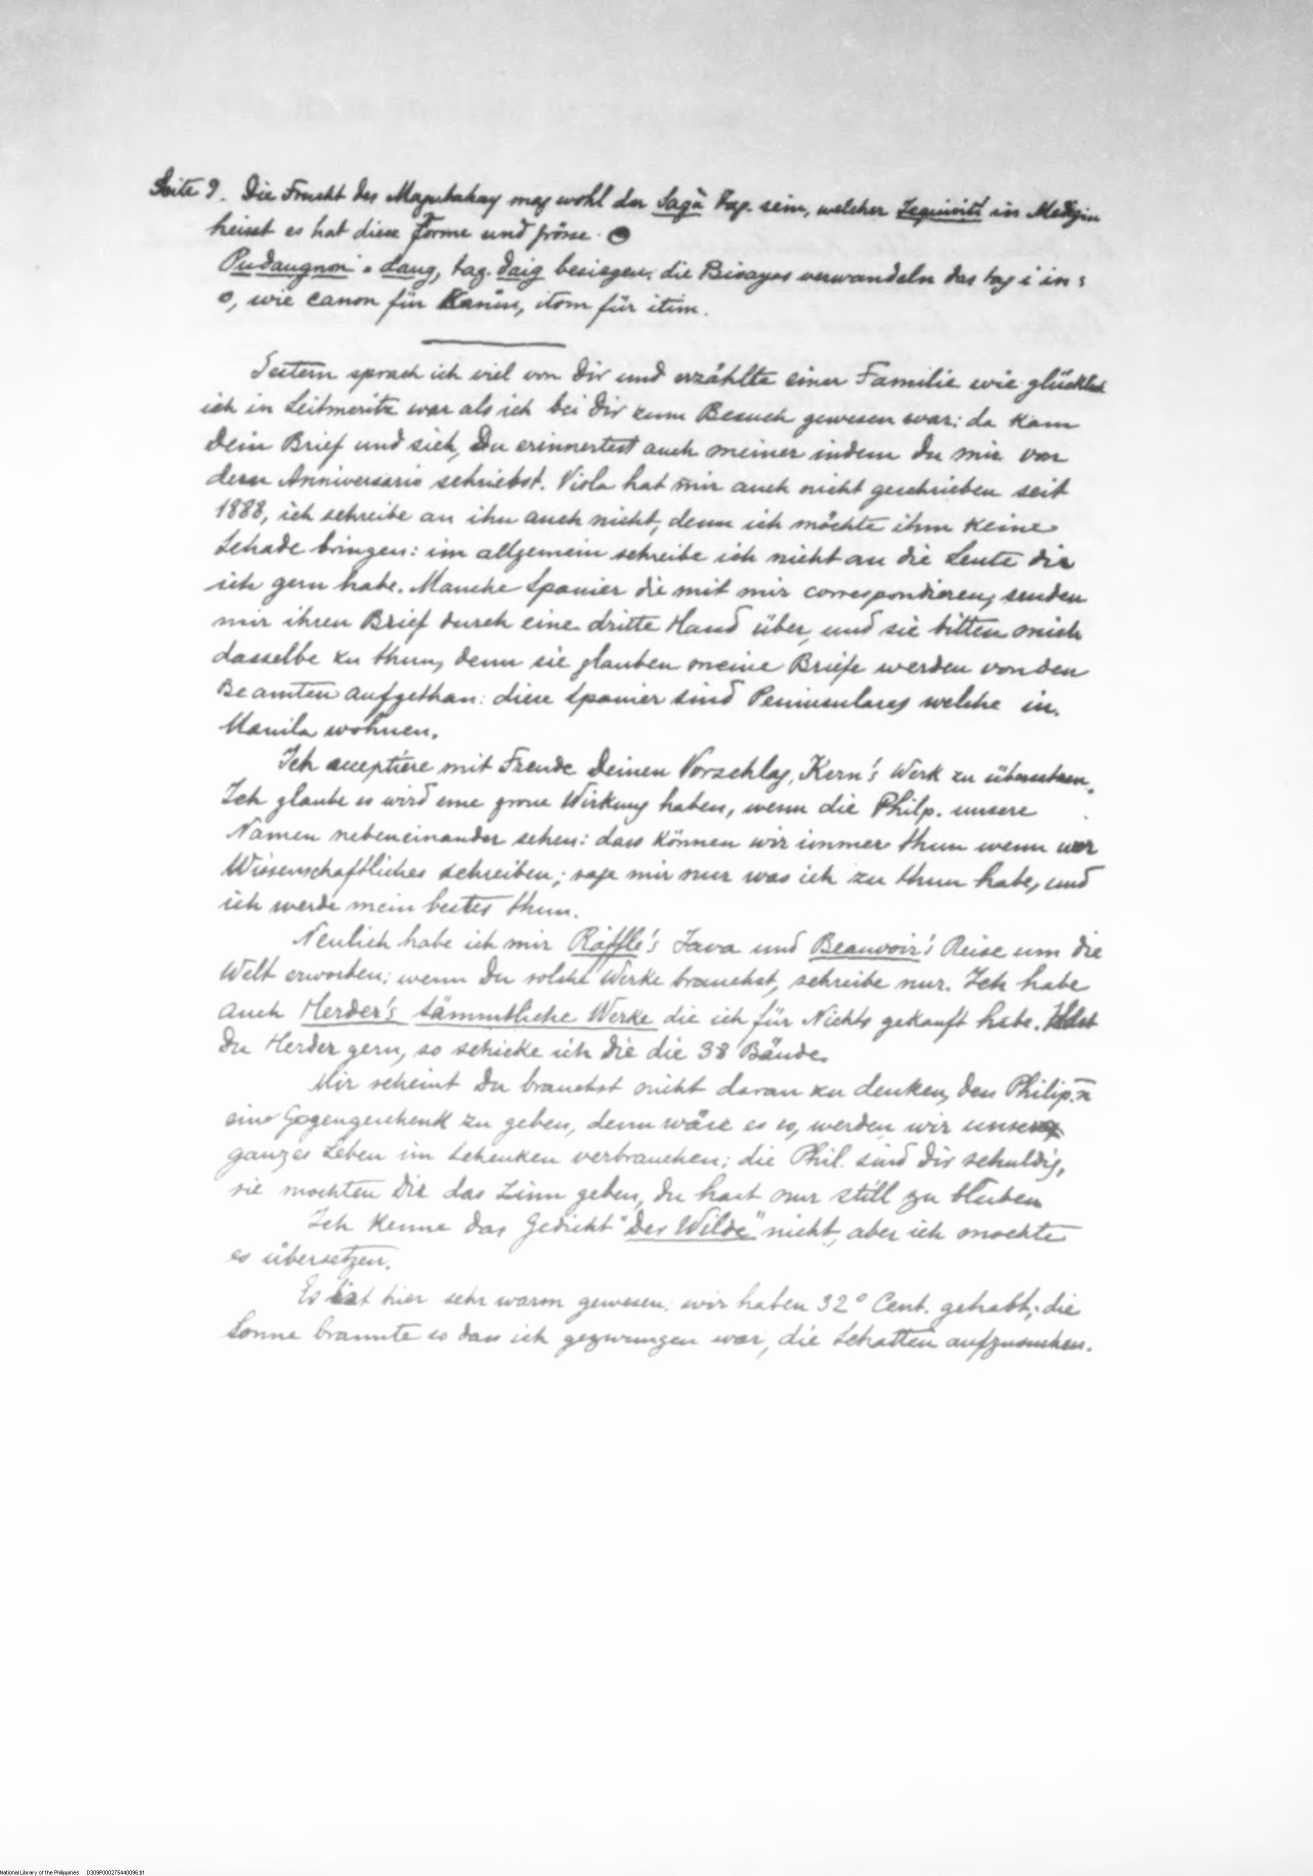 Seite 9. Die Frucht des Magubahay mag wohl der Sagà Tag. sein, welcher Jequirití in Medizin
heisst es hat diese Forme und grösse.
Pudaugnon = daug, tag. daig besiegen; die Bisayas verwandeln das tag i in
o, wie canon für Kanin, itom für itim.
Gestern sprach ich viel von Dir und erzählte einer Familie wie glücklich
ich in Leitmeritz war als ich bei Dir zum Besuch gewesen war; da kam
Dein Brief und sieh, Du erinnertest auch meiner indem Du mir von
dem Anniversario schriebst. Viola hat mir auch nicht geschrieben seit
1888, ich schreibe an ihn auch nicht, denn ich möchte ihm keine
Schade bringen: im allgemein schreibe ich nicht an die Leute die
ich gern habe. Manche Spanier die mit mir correspondieren, senden
mir ihren Brief durch eine dritte Hand über, und sie bitten mich
dasselbe zu thun, denn sie glauben meine Briefe werden von den
Beamten aufgethan: diese Spanier sind Peninsulares welche in
Manila wohnen.
Ich acceptiere mit Freude Deinen Vorschlag, Kern's Werk zu übersetzen.
Ich glaube es wird eine grosse Wirkung haben, wenn die Philp. unsere
Namen nebeneinander sehen: dass können wir immer thun wenn wir
Wissenschaftliches schreiben; sage mir nur was ich zu thun habe, und
ich werde mein bestes thun.
Neulich habe ich mir Raffle's Java und Beauvoir's Reise um die
Welt erworben; wenn Du solche Werke brauchst, schreibe nur. Ich habe
auch Herder's sämmtliche Werke die ich für Nichts gekauft habe.
Du Herder gern, so schicke ich Die die 38 Bände.
Mir scheint Du brauchst nicht daran zu denken, den Philip.n
eine Gegengeschenk zu geben, denn wäre es so, werden wir unser
ganzes Leben im Schenken verbrauchen; die Phil. sind Dir schuldig,
sie mochten Die das Zinn geben, du hast nur still zu bleiben
Ich kenne das Gedicht "Der Wilde" nicht, aber ich mochte
es übersetzen.
Es ist hier sehr warm gewesen; wir haben 32° Cent. gehabt; die
Sonne brannte so dass ich gezwungen war, die Schatten aufzusuchen.
National Library of the Philippines D309P000275440096.tif